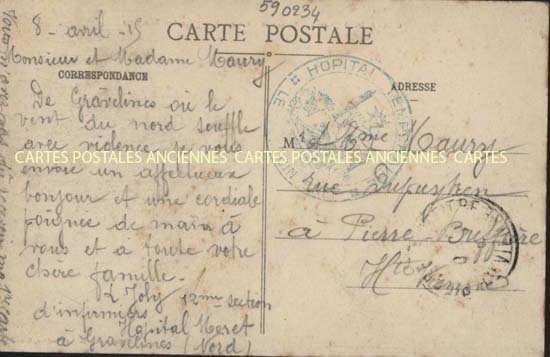 590234
8 - avril - 15
CARTE POSTALE
Monsieur et Madame Maury
CORRESPONDANCE
ADRESSE
De Gravelines où le
vent du nord souffle
avec violence je vous
envoie un affectueux
bonjour et une cordiale
poignée de main à
vous et à toute votre
chère famille.
L Joly 12me section
d'infirmiers
Hôpital Meret
à Gravelines (Nord)
HOPITAL TEMP
M r Mme Maury
rue Dupuytren
à Pierre-Buffière
Hte Vienne
CARTES POSTALES ANCIENNES CARTES POSTALES ANCIENNES CARTES POSTALES ANCIENNES